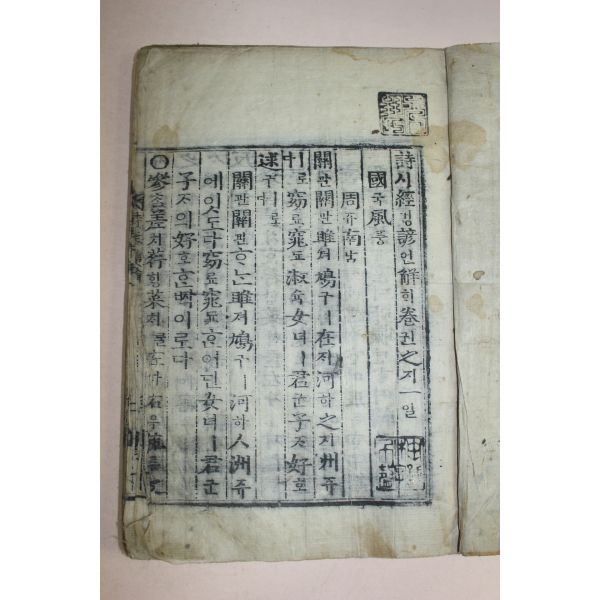 詩시經경諺언解ᄒᆡ卷권之지一일
國국風풍
周쥬南남
關관關관雎져鳩구ㅣ在ᄌᆡ河하之지州쥬ㅣ로
窈요窕됴淑슉女녀ㅣ君군子ᄌᆞ好호逑구ㅣ로
關관關관ᄒᆞᄂᆞᆫ雎져鳩구ㅣ河하人洲쥬
에잇도다窈요窕됴ᄒᆞᆫ어딘女녀ㅣ君군
子ᄌᆞ의好호ᄒᆞᆫᄧᅡᆨ이로다
○參ᄎᆞᆷ差치荇ᄒᆡᆼ菜ᄎᆡ左자右우